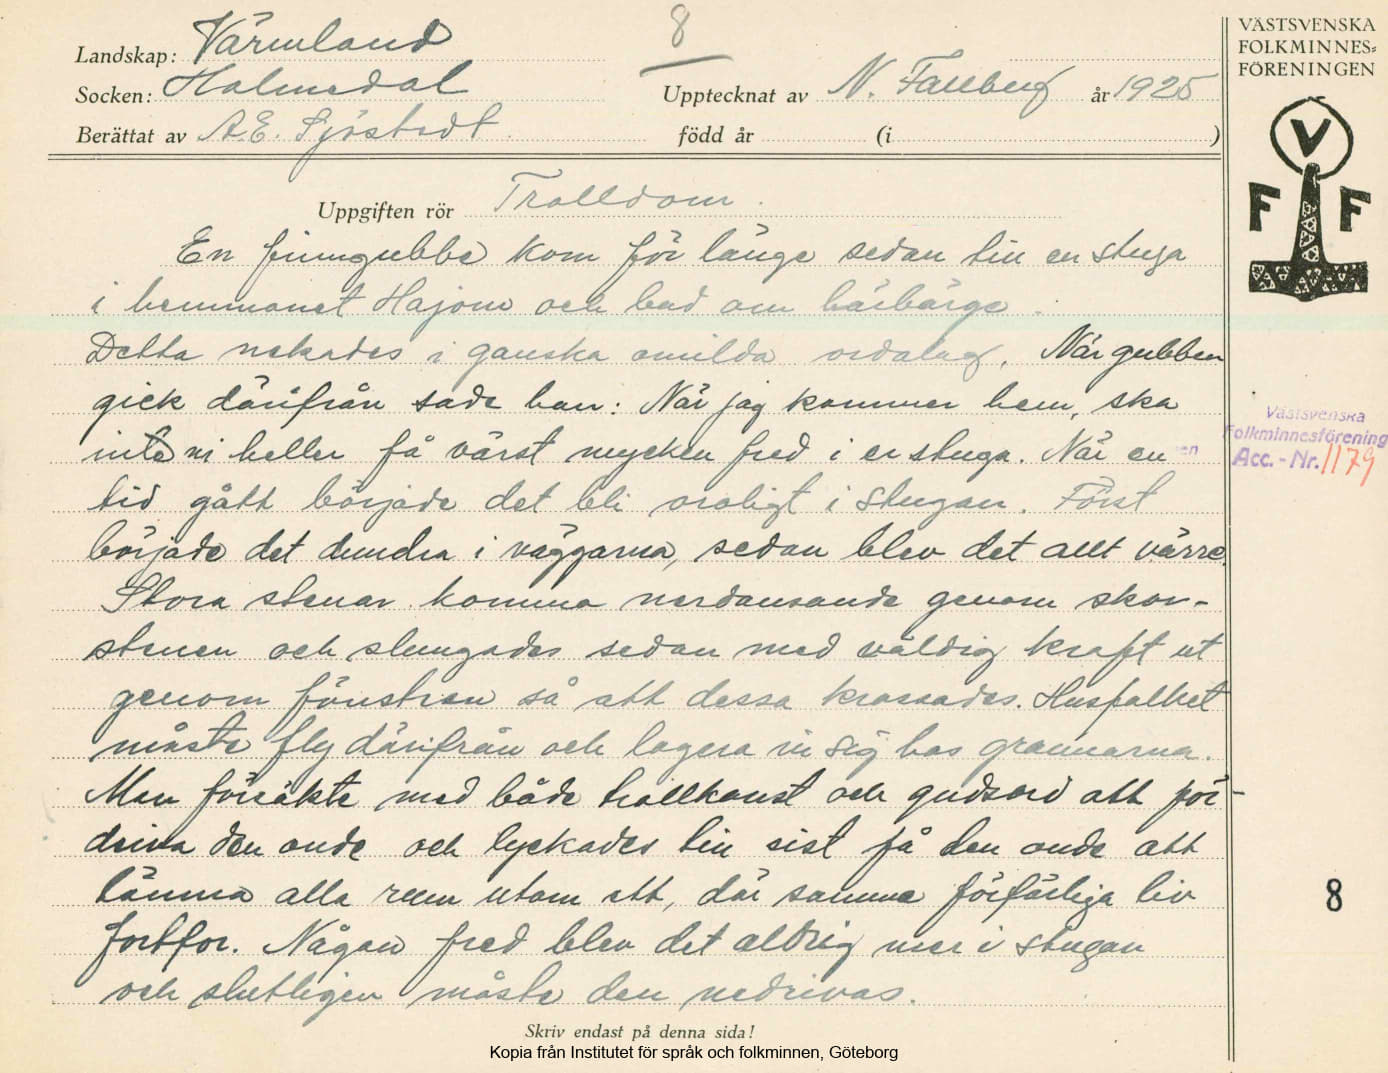 8
Landskap: Värmland
Socken: Holmedal
Upptecknat av N. Fallberg år 1925
Berättat av A.E. Sjöstedt född år (i )
Uppgiften rör Trolldom.
En finngubbe kom för länge sedan till en stuga
i hemmanet Hajom och bad om härbärge.
Detta nekades i ganska omilda ordalag. När gubben
gick därifrån sade han: När jag kommer hem, ska
inte ni heller få värst mycken fred i er stuga. När en
tid gått började det bli oroligt i stugan. Först
började det dundra i väggarna, sedan blev det allt värre.
Stora stenar komma nerdansande genom skor-
stenen och slungades sedan med väldig kraft ut
genom fönstren så att dessa krossades. Husfolket
måste fly därifrån och logera in sig hos grannarna.
Man försökte med både trollkonst och gudsord att för-
driva den onde och lyckades till sist få den onde att
lämna alla rum utom ett, där samma förfärliga liv
fortfor. Någon fred blev det aldrig mer i stugan
och slutligen måste den nedrivas.
Skriv endast på denna sida!
Kopia från Institutet för språk och folkminnen, Göteborg
VÄSTSVENSKA
FOLKMINNES-
FÖRENINGEN
V
F F
Västsvenska
Folkminnesförening
en
Acc.-Nr. 1179
8